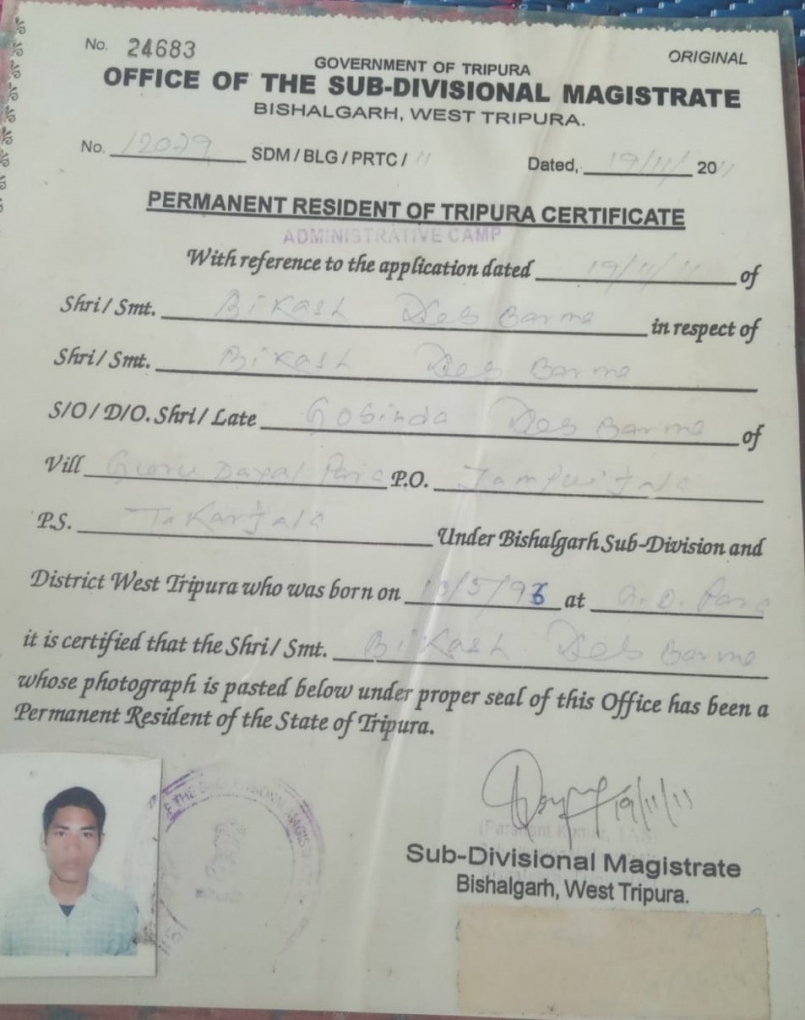 No. 24683
ORIGINAL
GOVERNMENT OF TRIPURA
OFFICE OF THE SUB-DIVISIONAL MAGISTRATE
BISHALGARH, WEST TRIPURA.
No. 12029 SDM / BLG / PRTC / 11 Dated, 19/11/ 2011
PERMANENT RESIDENT OF TRIPURA CERTIFICATE
ADMINISTRATIVE CAMP
With reference to the application dated 19/11/11 of
Shri / Smt. Bikash Deb Barma in respect of
Shri / Smt. Bikash Deb Barma
S/O / D/O. Shri / Late Gobinda Deb Barma of
Vill Guru Dayal Para P.O. Jampuijala
P.S. Takarjala Under Bishalgarh Sub-Division and
District West Tripura who was born on /5/96 at G.D. Para
it is certified that the Shri / Smt. Bikash Deb Barma
whose photograph is pasted below under proper seal of this Office has been a
Permanent Resident of the State of Tripura.
19/11/11
Sub-Divisional Magistrate
Bishalgarh, West Tripura.